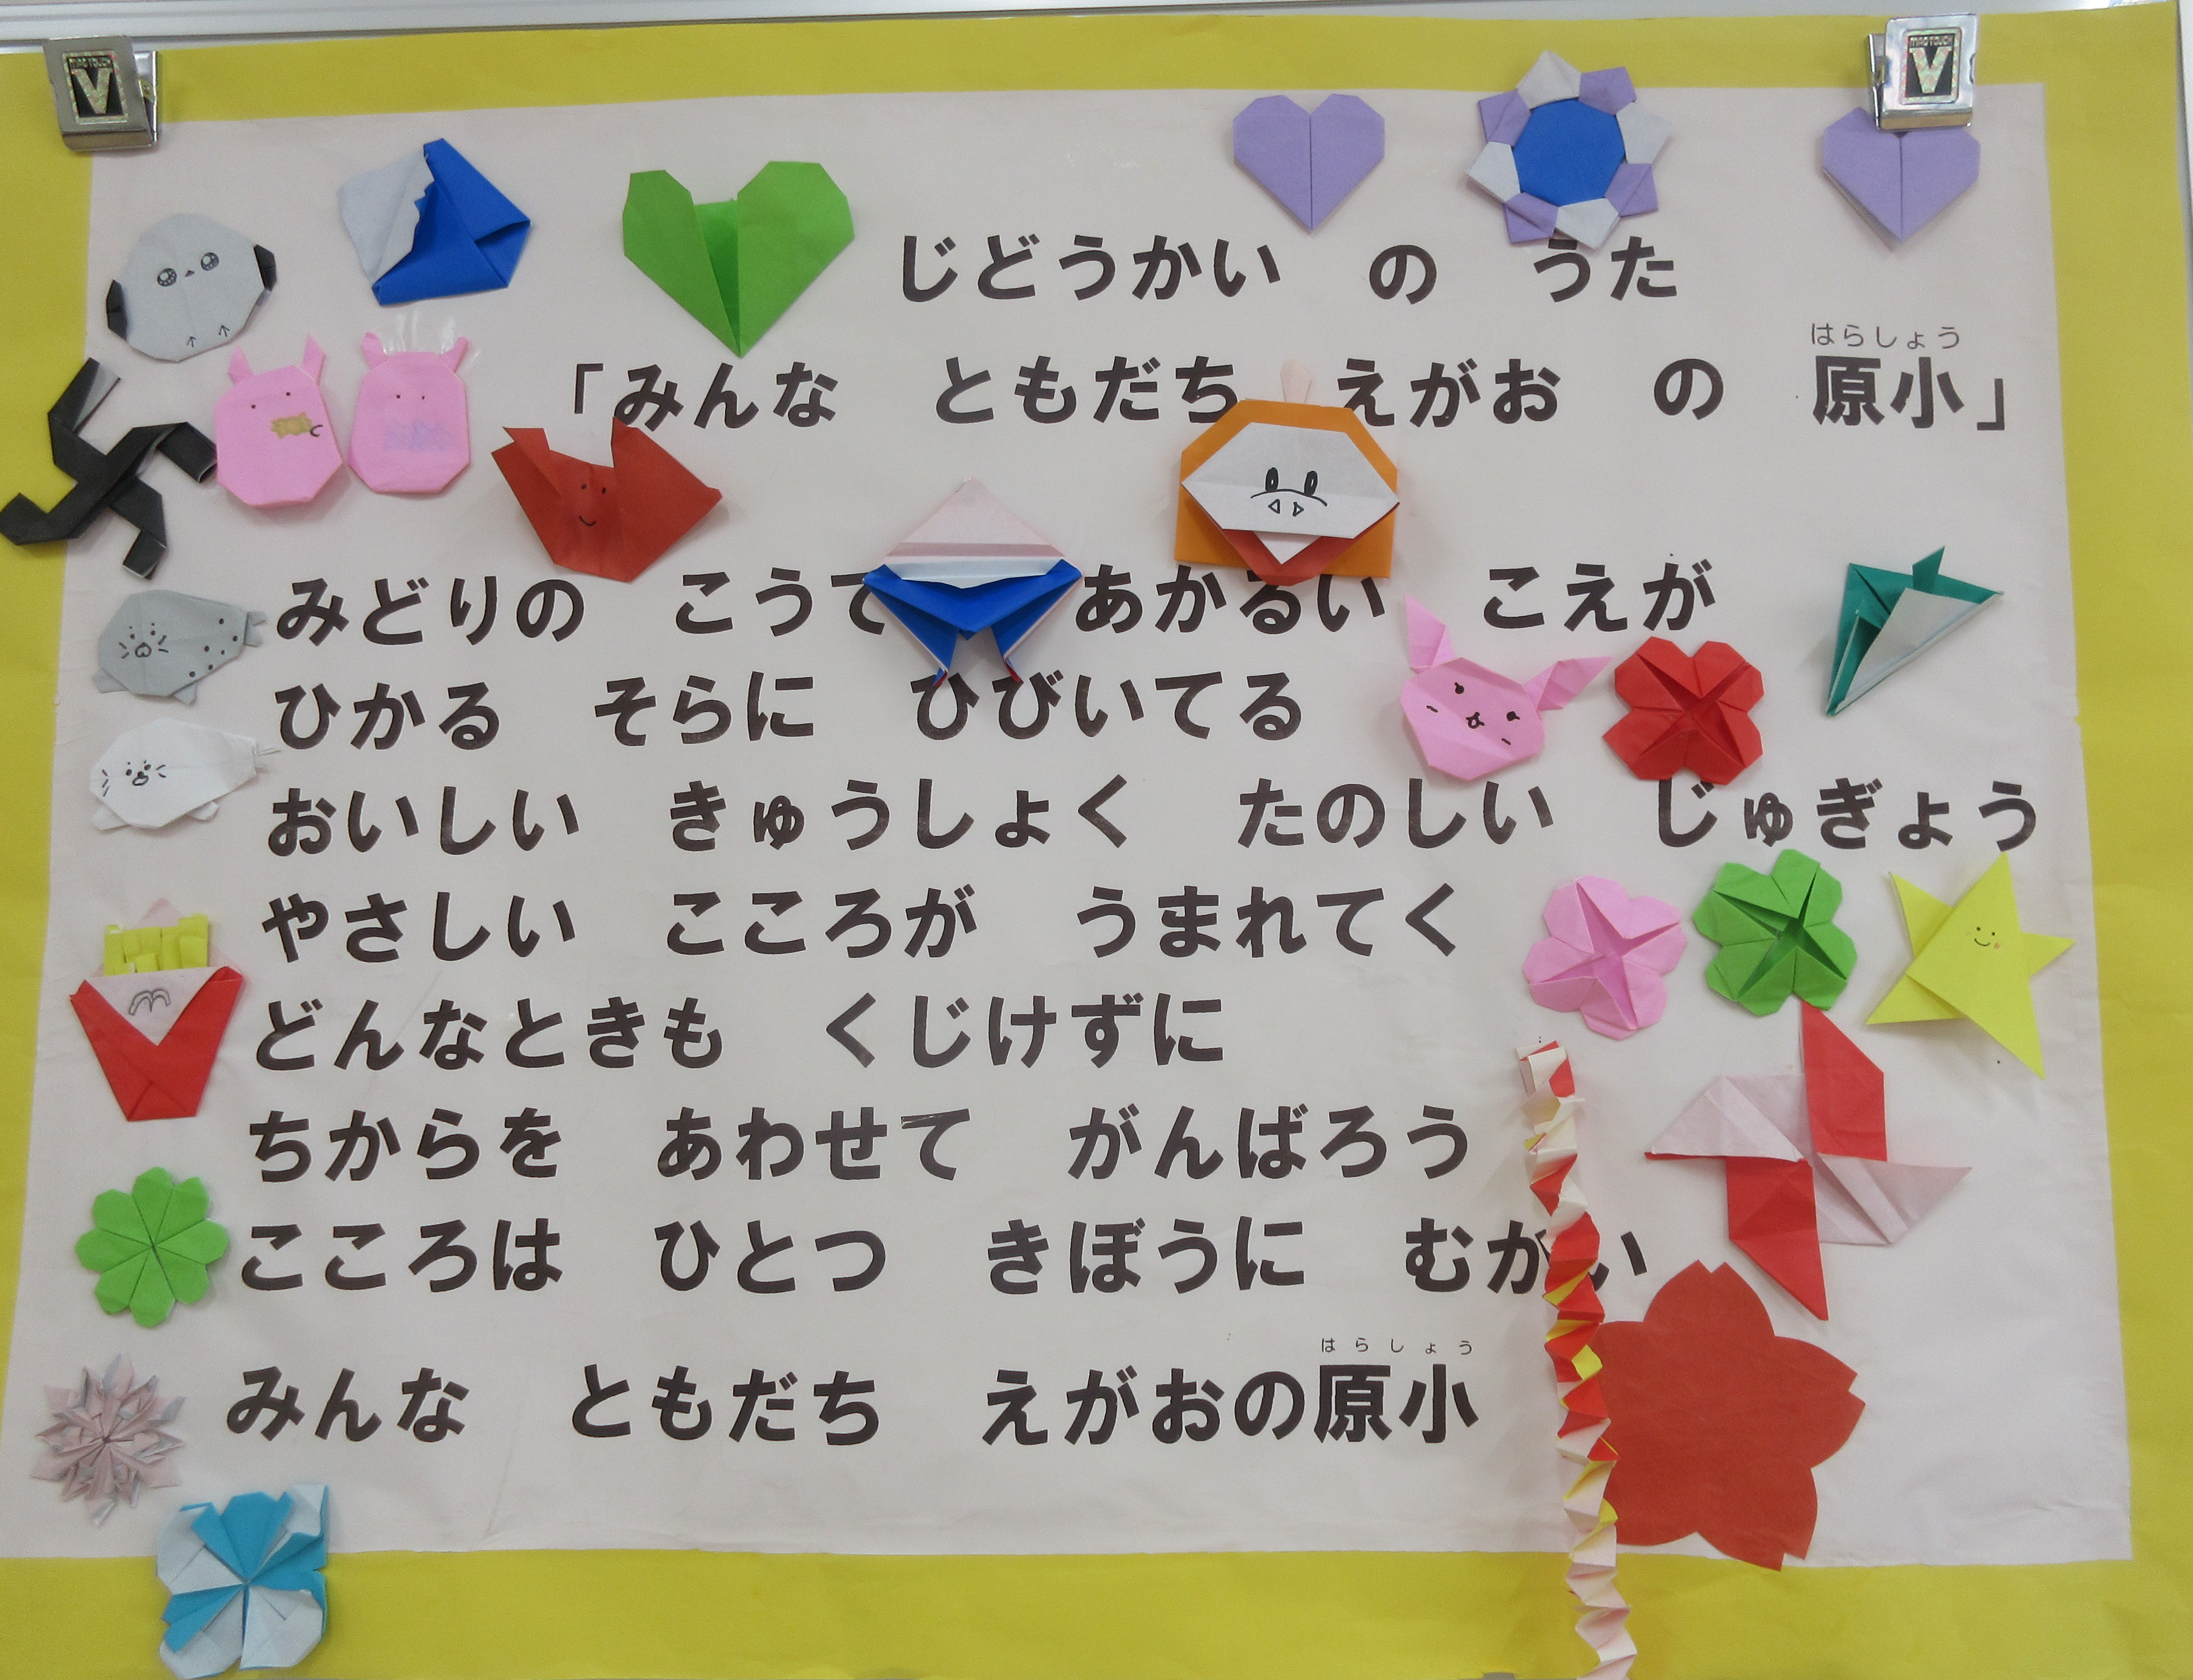 MAG TOUCH V
MAG TOUCH V
じどうかい の うた
はらしょう
「みんな ともだち えがお の 原小」
みどりの こうて あかるい こえが
ひかる そらに ひびいてる
おいしい きゅうしょく たのしい じゅぎょう
やさしい こころが うまれてく
どんなときも くじけずに
ちからを あわせて がんばろう
こころは ひとつ きぼうに むかい
はらしょう
みんな ともだち えがおの原小